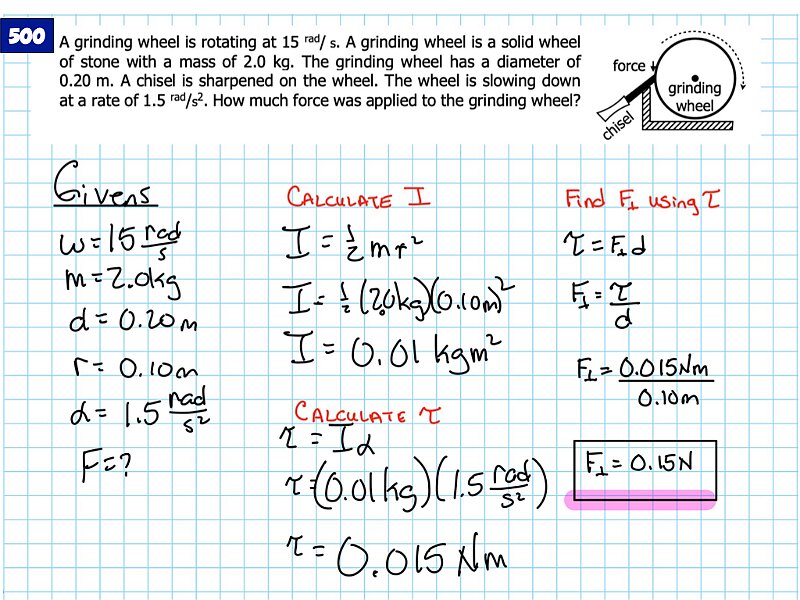 500
A grinding wheel is rotating at 15 rad/s. A grinding wheel is a solid wheel
of stone with a mass of 2.0 kg. The grinding wheel has a diameter of
0.20 m. A chisel is sharpened on the wheel. The wheel is slowing down
at a rate of 1.5 rad/s². How much force was applied to the grinding wheel?
force
grinding
wheel
chisel
Givens
ω = 15 rad/s
m = 2.0kg
d = 0.20m
r = 0.10m
α = 1.5 rad/s²
F = ?
CALCULATE I
I = 1/2 mr²
I = 1/2 (2.0kg)(0.10m)²
I = 0.01 kgm²
CALCULATE τ
τ = Iα
τ = (0.01kg)(1.5 rad/s²)
τ = 0.015 Nm
Find F⊥ using τ
τ = F⊥d
F⊥ = τ/d
F⊥ = 0.015Nm/0.10m
F⊥ = 0.15N